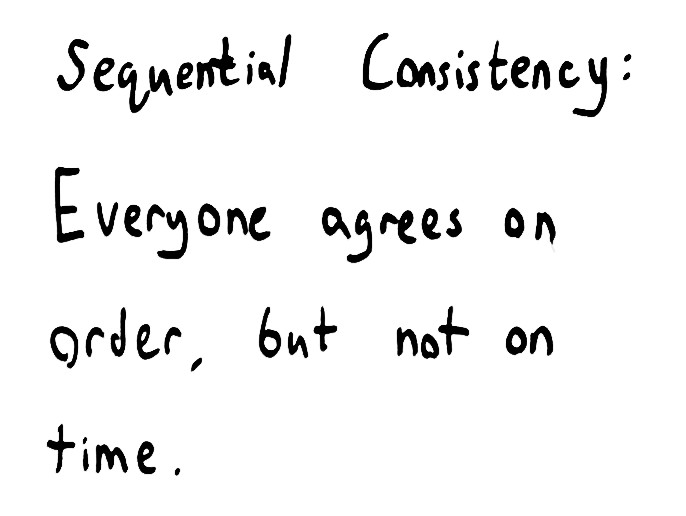 Sequential Consistency:
Everyone agrees on
order, but not on
time.